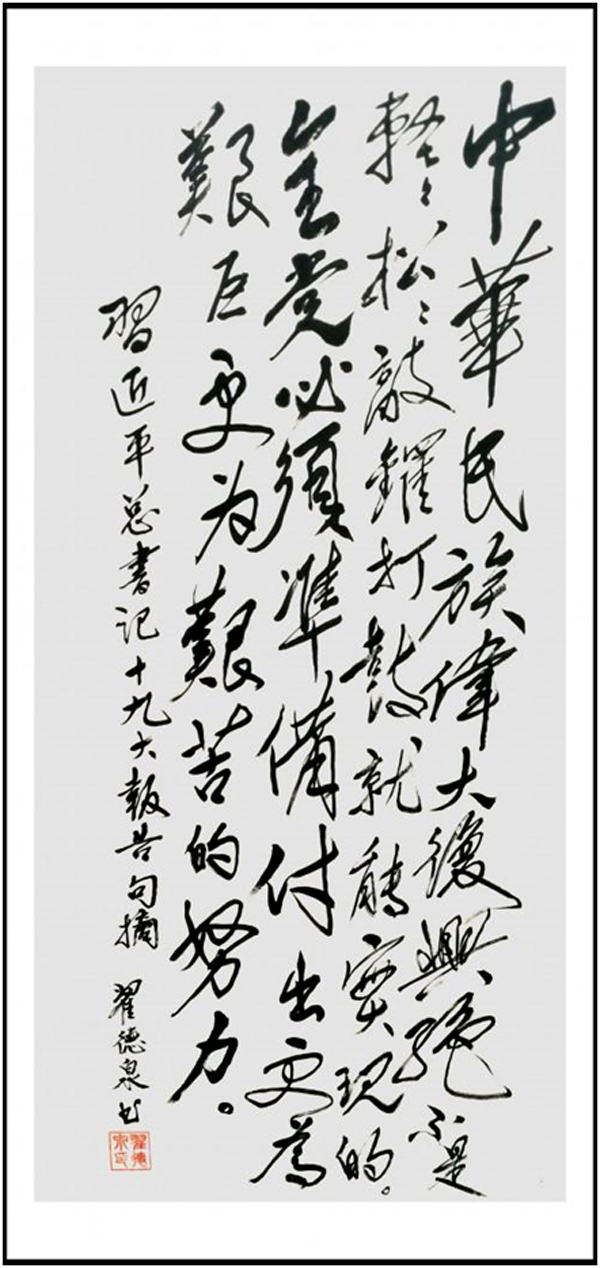 中華民族偉大復興絕不是
輕々松々敲鑼打鼓就能實现的。
全党必須準備付出更為
艱巨更为艱苦的努力。
習近平总書记十九大報告句摘 翟德泉书
翟德泉印